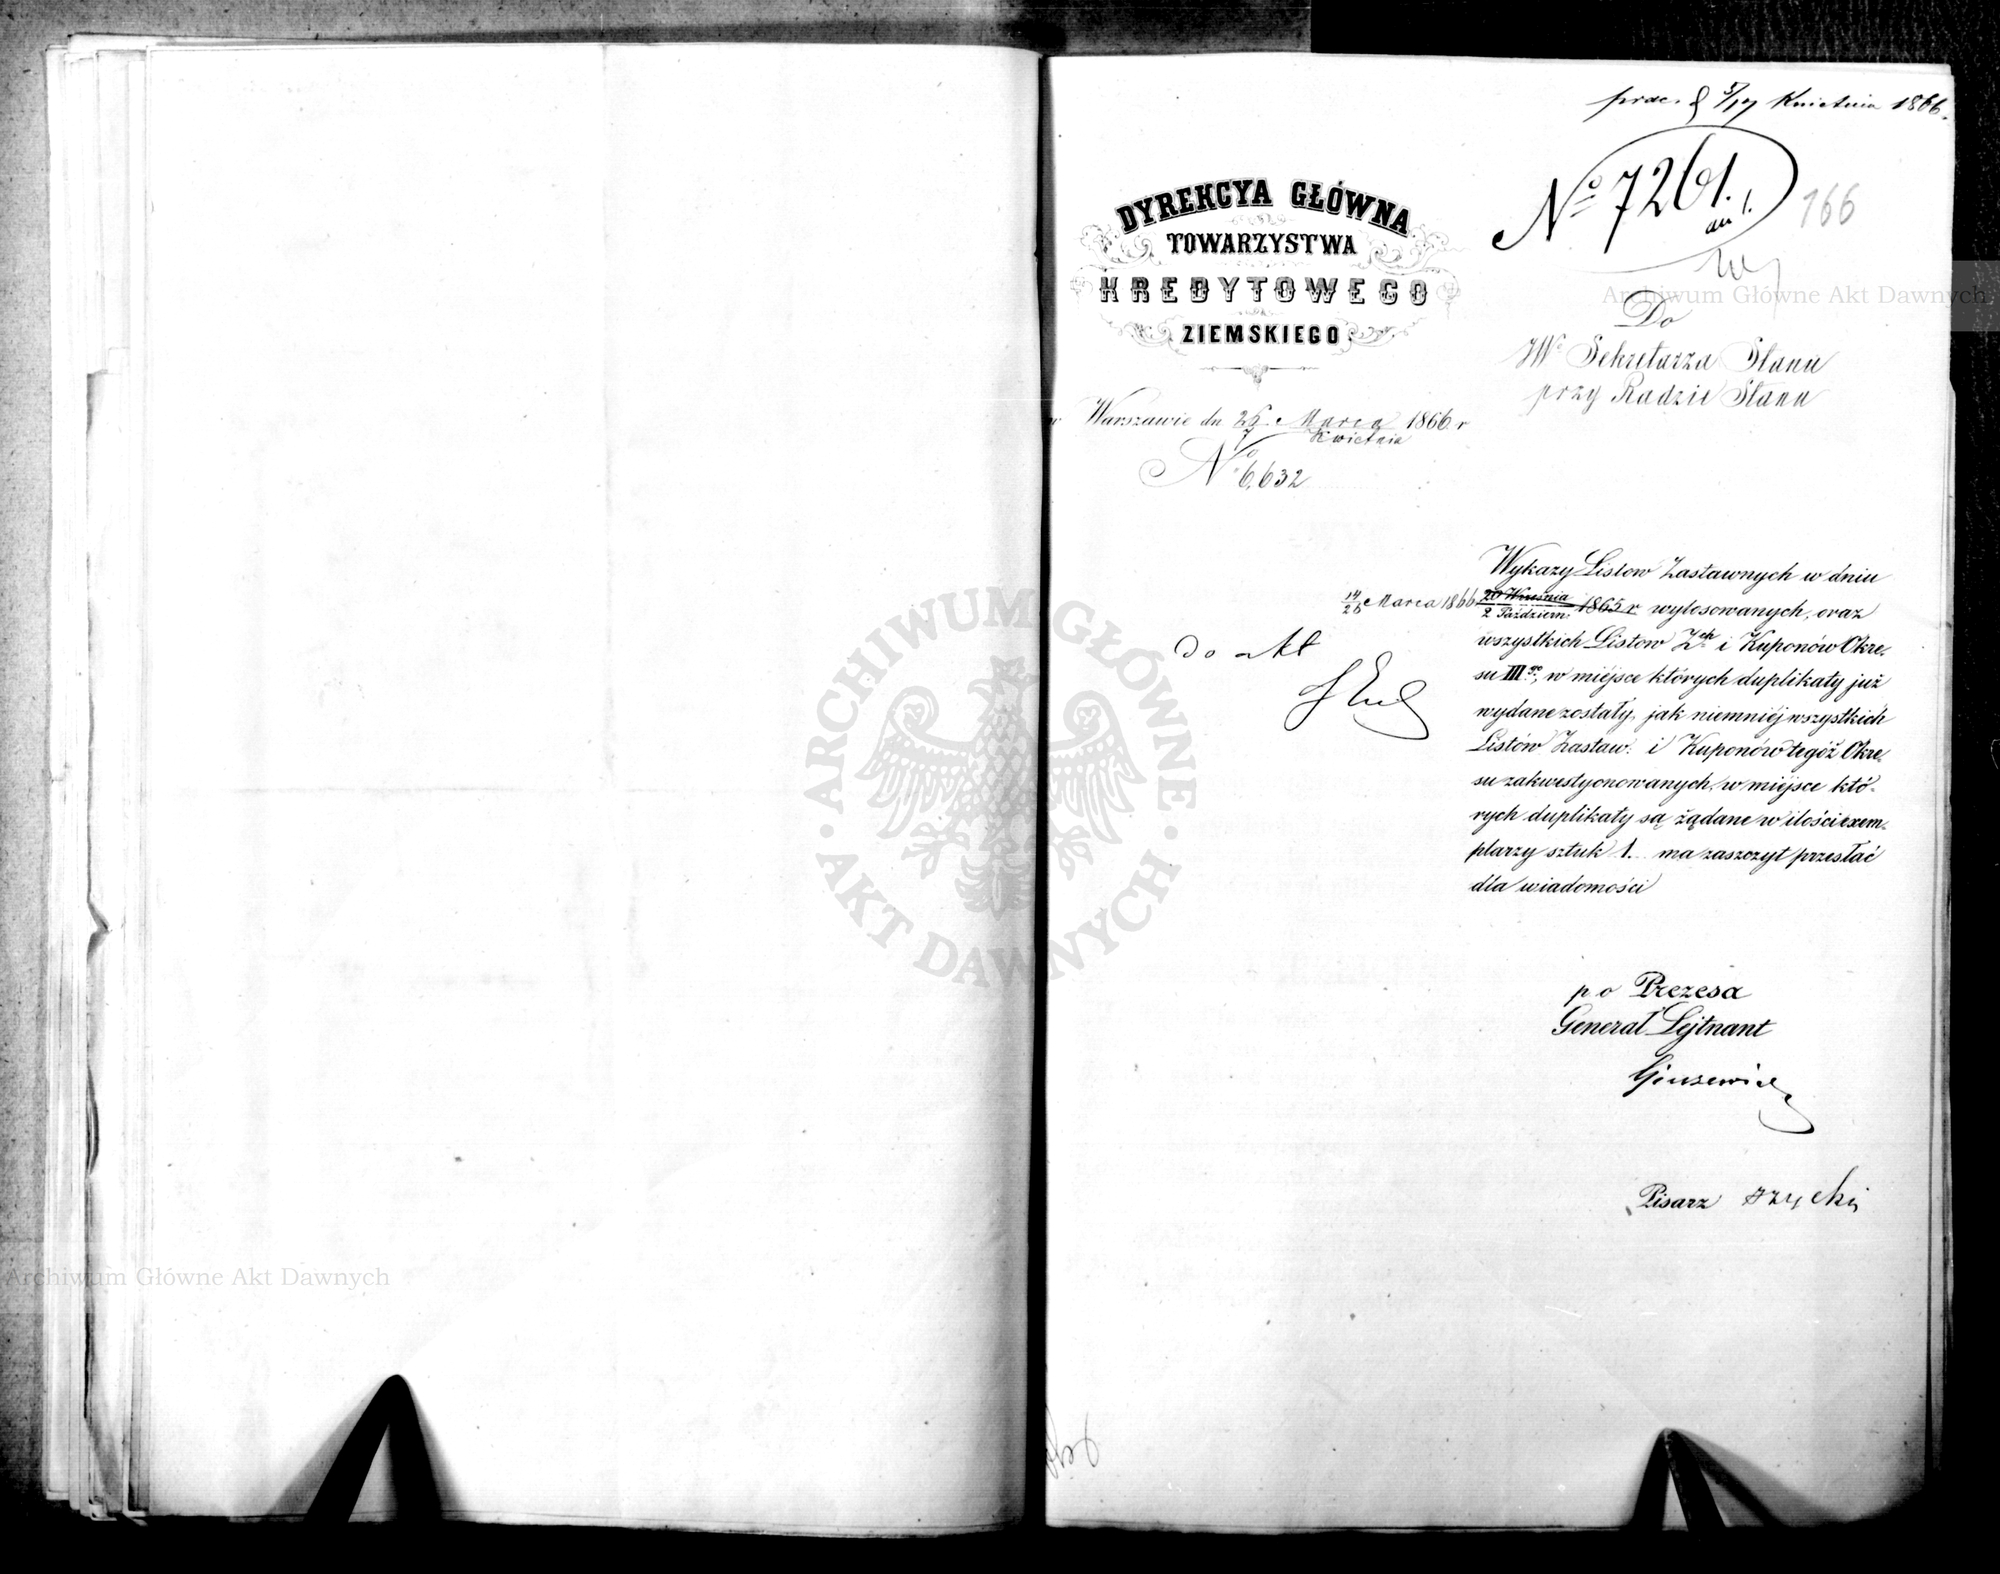 5/17 Kwietnia 1866.
No 7261.
166
DYREKCYA GŁÓWNA
TOWARZYSTWA
KREDYTOWEGO
ZIEMSKIEGO
Do
JW. Sekretarza Stanu
przy Radzie Stanu
w Warszawie dn 26 Marca / 7 Kwietnia 1866 r
No 6,632
Wykazy Listow Zastawnych w dniu
14/26 Marca 1866 20 Września / 2 Październ. 1865 r wylosowanych, oraz
wszystkich Listow Zch i Kuponów Okre-
su III go, w miejsce których duplikaty już
wydane zostały, jak niemniéj wszystkich
Listów Zastaw. i Kuponów tegóż Okre-
su zakwestyonowanych, w miejsce któ-
rych duplikaty są żądane w ilości exem-
plarzy sztuk 1. ma zaszczyt przesłać
dla wiadomości
do Akt
p.o Prezesa
Generał Lejtnant
Pisarz
Archiwum Główne Akt Dawnych
ARCHIWUM GŁÓWNE · AKT DAWNYCH ·
Archiwum Główne Akt Dawnych